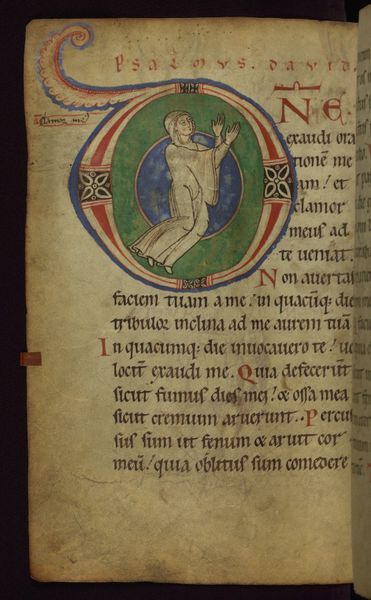 PSALMVS. DAVID.
clamor me
DNE.
exaudi ora
tionē me
am! et
clamor
meus ad
te ueniat.
Non auertas
faciem tuam a me! in quacūq: die
tribulor inclina ad me aurem tuā
In quacumq: die inuocauero te! ue
lociť exaudi me. Quia defecerūt
sicut fumus dies mei! & ossa mea
sicut cremium aruerunt. Percus
sus sum ut fenum & aruit cor
meū! quia oblitus sum comedere